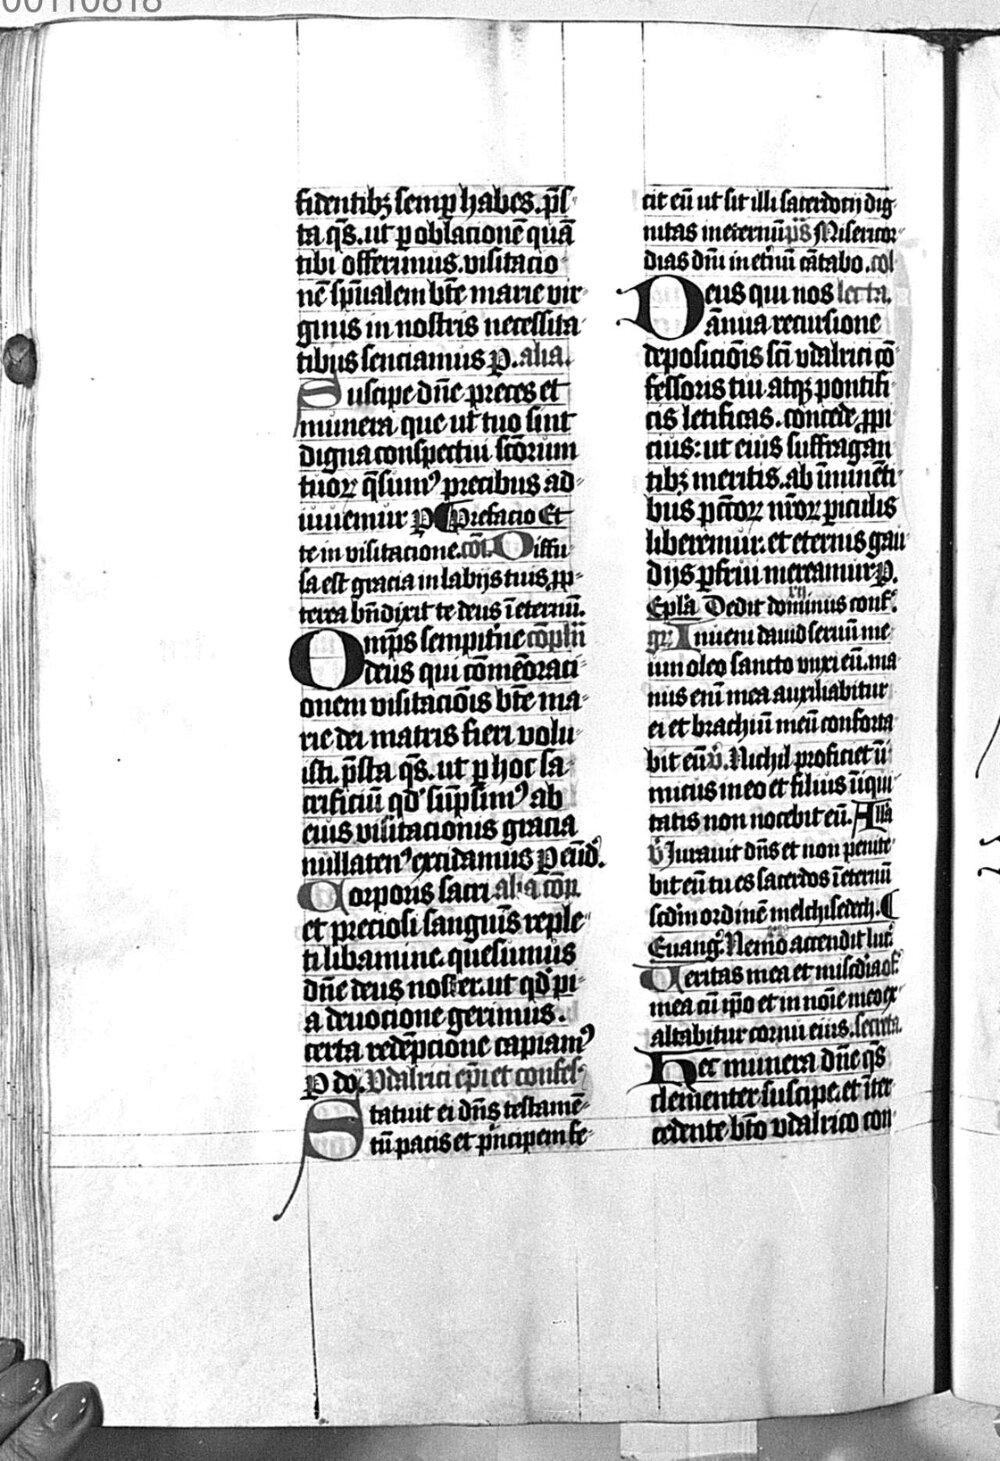 00110818
fidentibꝫ semꝑ habes. p̄s
ta q̄s. ut ꝑ oblacionē quā
tibi offerimus. visitacio
nē sp̄ualem btē marie vir
ginis in nostris necessita
tibus senciamus ꝑ. alia.
Suscipe dn̄e preces et
munera que ut tuo sint
digna conspectui sc̄orum
tuoꝝ q̄sumꝰ precibus ad
iuuemur ꝑ Prefacio Et
te in visitacione. cō. Diffu
sa est gracia in labijs tuis. ꝓp
terea bn̄dixit te deus ī eternū.
Omp̄s sempit̄ne cōplēn
deus qui cōmēoraci
onem visitaciōis btē ma
rie dei matris fieri volu
isti. p̄sta q̄s. ut ꝑ hoc sa
crificiū qd̓ sūpsimꝰ ab
eius visitacionis gracia
nullatenꝰ excidamus ꝑ eūd̓.
Corporis sacri alia cōp̄
et preciosi sanguīs reple
ti libamine. quesumus
dn̄e deus noster. ut qd̓ pi
a deuocione gerimus.
certa redēpcione capiamꝰ
ꝑ do. Vdalrici ep̄i et confes
Statuit ei dn̄s testamē
tū pacis et p̄ncipem fe
cit eū ut sit illi sacerdotij dig
nitas in eternū p̄s Misericor
dias dn̄i in et̄nū cātabo. col
Deus qui nos lecta.
ānua recursione
deposiciōis sc̄i vdalrici cō
fessoris tui atqꝫ pontifi
cis letificas. concede ꝓpi
cius: ut eius suffragan
tibꝫ meritis. ab īminēti
bus pc̄toꝝ nr̄oꝝ piculis
liberemur. et eternis gau
dijs ꝑfrui mereamur ꝑ.
Epl̄a Dedit dominus conf̄.
gr̄. Inueni dauid seruū me
um oleo sancto vnxi eū. ma
nus enī mea auxiliabitur
ei et brachiū meū conforta
bit eū v̄. Nichil proficiet ī
micus in eo et filius īiqui
tatis non nocebit eū. All̄a
v̄ Iurauit dn̄s et non penite
bit eū tu es sacerdos ī eternū
scdm ordinē melchisedech.
Euang̓. Nemo accendit luc̓.
Veritas mea et misc̄dia of̄.
mea cū ip̄o et in noīe meo ex
altabitur cornu eius. secreta.
Hec munera dn̄e q̄s
clementer suscipe. et īter
cedente bt̄o vdalrico con